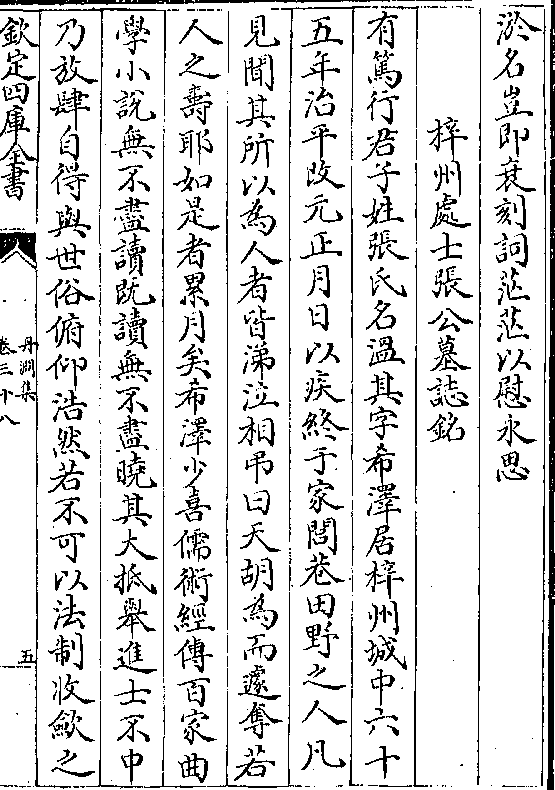 淤名豈即衰刻詞茫茫以慰永思
梓州處士張公墓誌銘
有篤行君子姓張氏名溫其字希澤居梓州城中六十
五年治平改元正月日以疾終于家閭巷田野之人凡
見聞其所以為人者皆涕泣相弔曰天胡為而遽奪若
人之壽耶如是者累月矣希澤少喜儒術經傳百家曲
學小說無不盡讀既讀無不盡曉其大抵舉進士不中
乃放肆自得與世俗俯仰浩然若不可以法制收斂之
欽定四庫全書
丹淵集
卷三十八
五